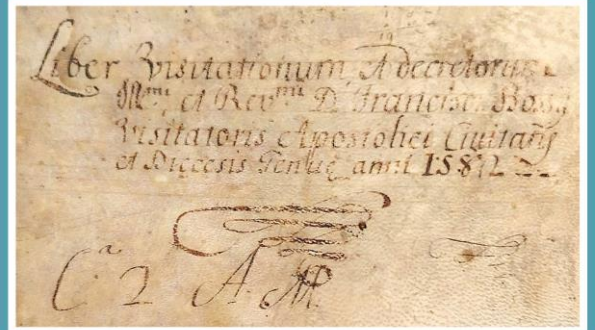 Liber Visitationum, et decretorum
Ill.mi et Rev.mi D. Francisci Bossij
Visitatoris Apostolici Civitatis
et Diecesis Genuę anni 1582
C.a 2 A. M.